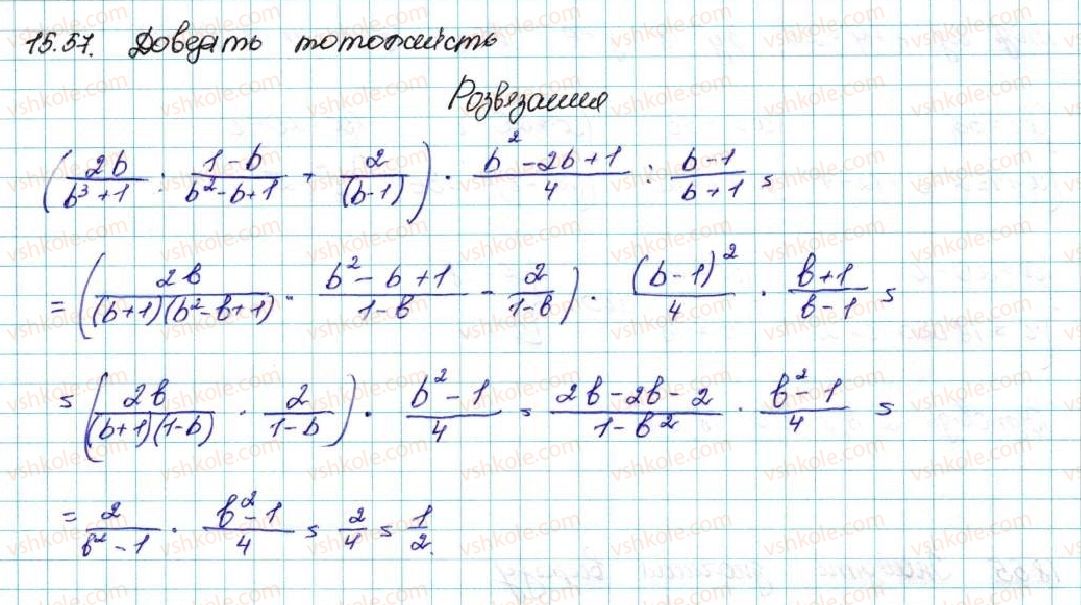 15.57. Доведіть тотожність
Розвязання
(2b/(b³+1) : (1-b)/(b²-b+1) + 2/(b-1)) · (b²-2b+1)/4 : (b-1)/(b+1) =
= (2b/((b+1)(b²-b+1)) · (b²-b+1)/(1-b) - 2/(1-b)) · (b-1)²/4 · (b+1)/(b-1) =
= (2b/((b+1)(1-b)) · 2/(1-b)) · (b²-1)/4 = (2b-2b-2)/(1-b²) · (b²-1)/4 =
= 2/(b²-1) · (b²-1)/4 = 2/4 = 1/2.